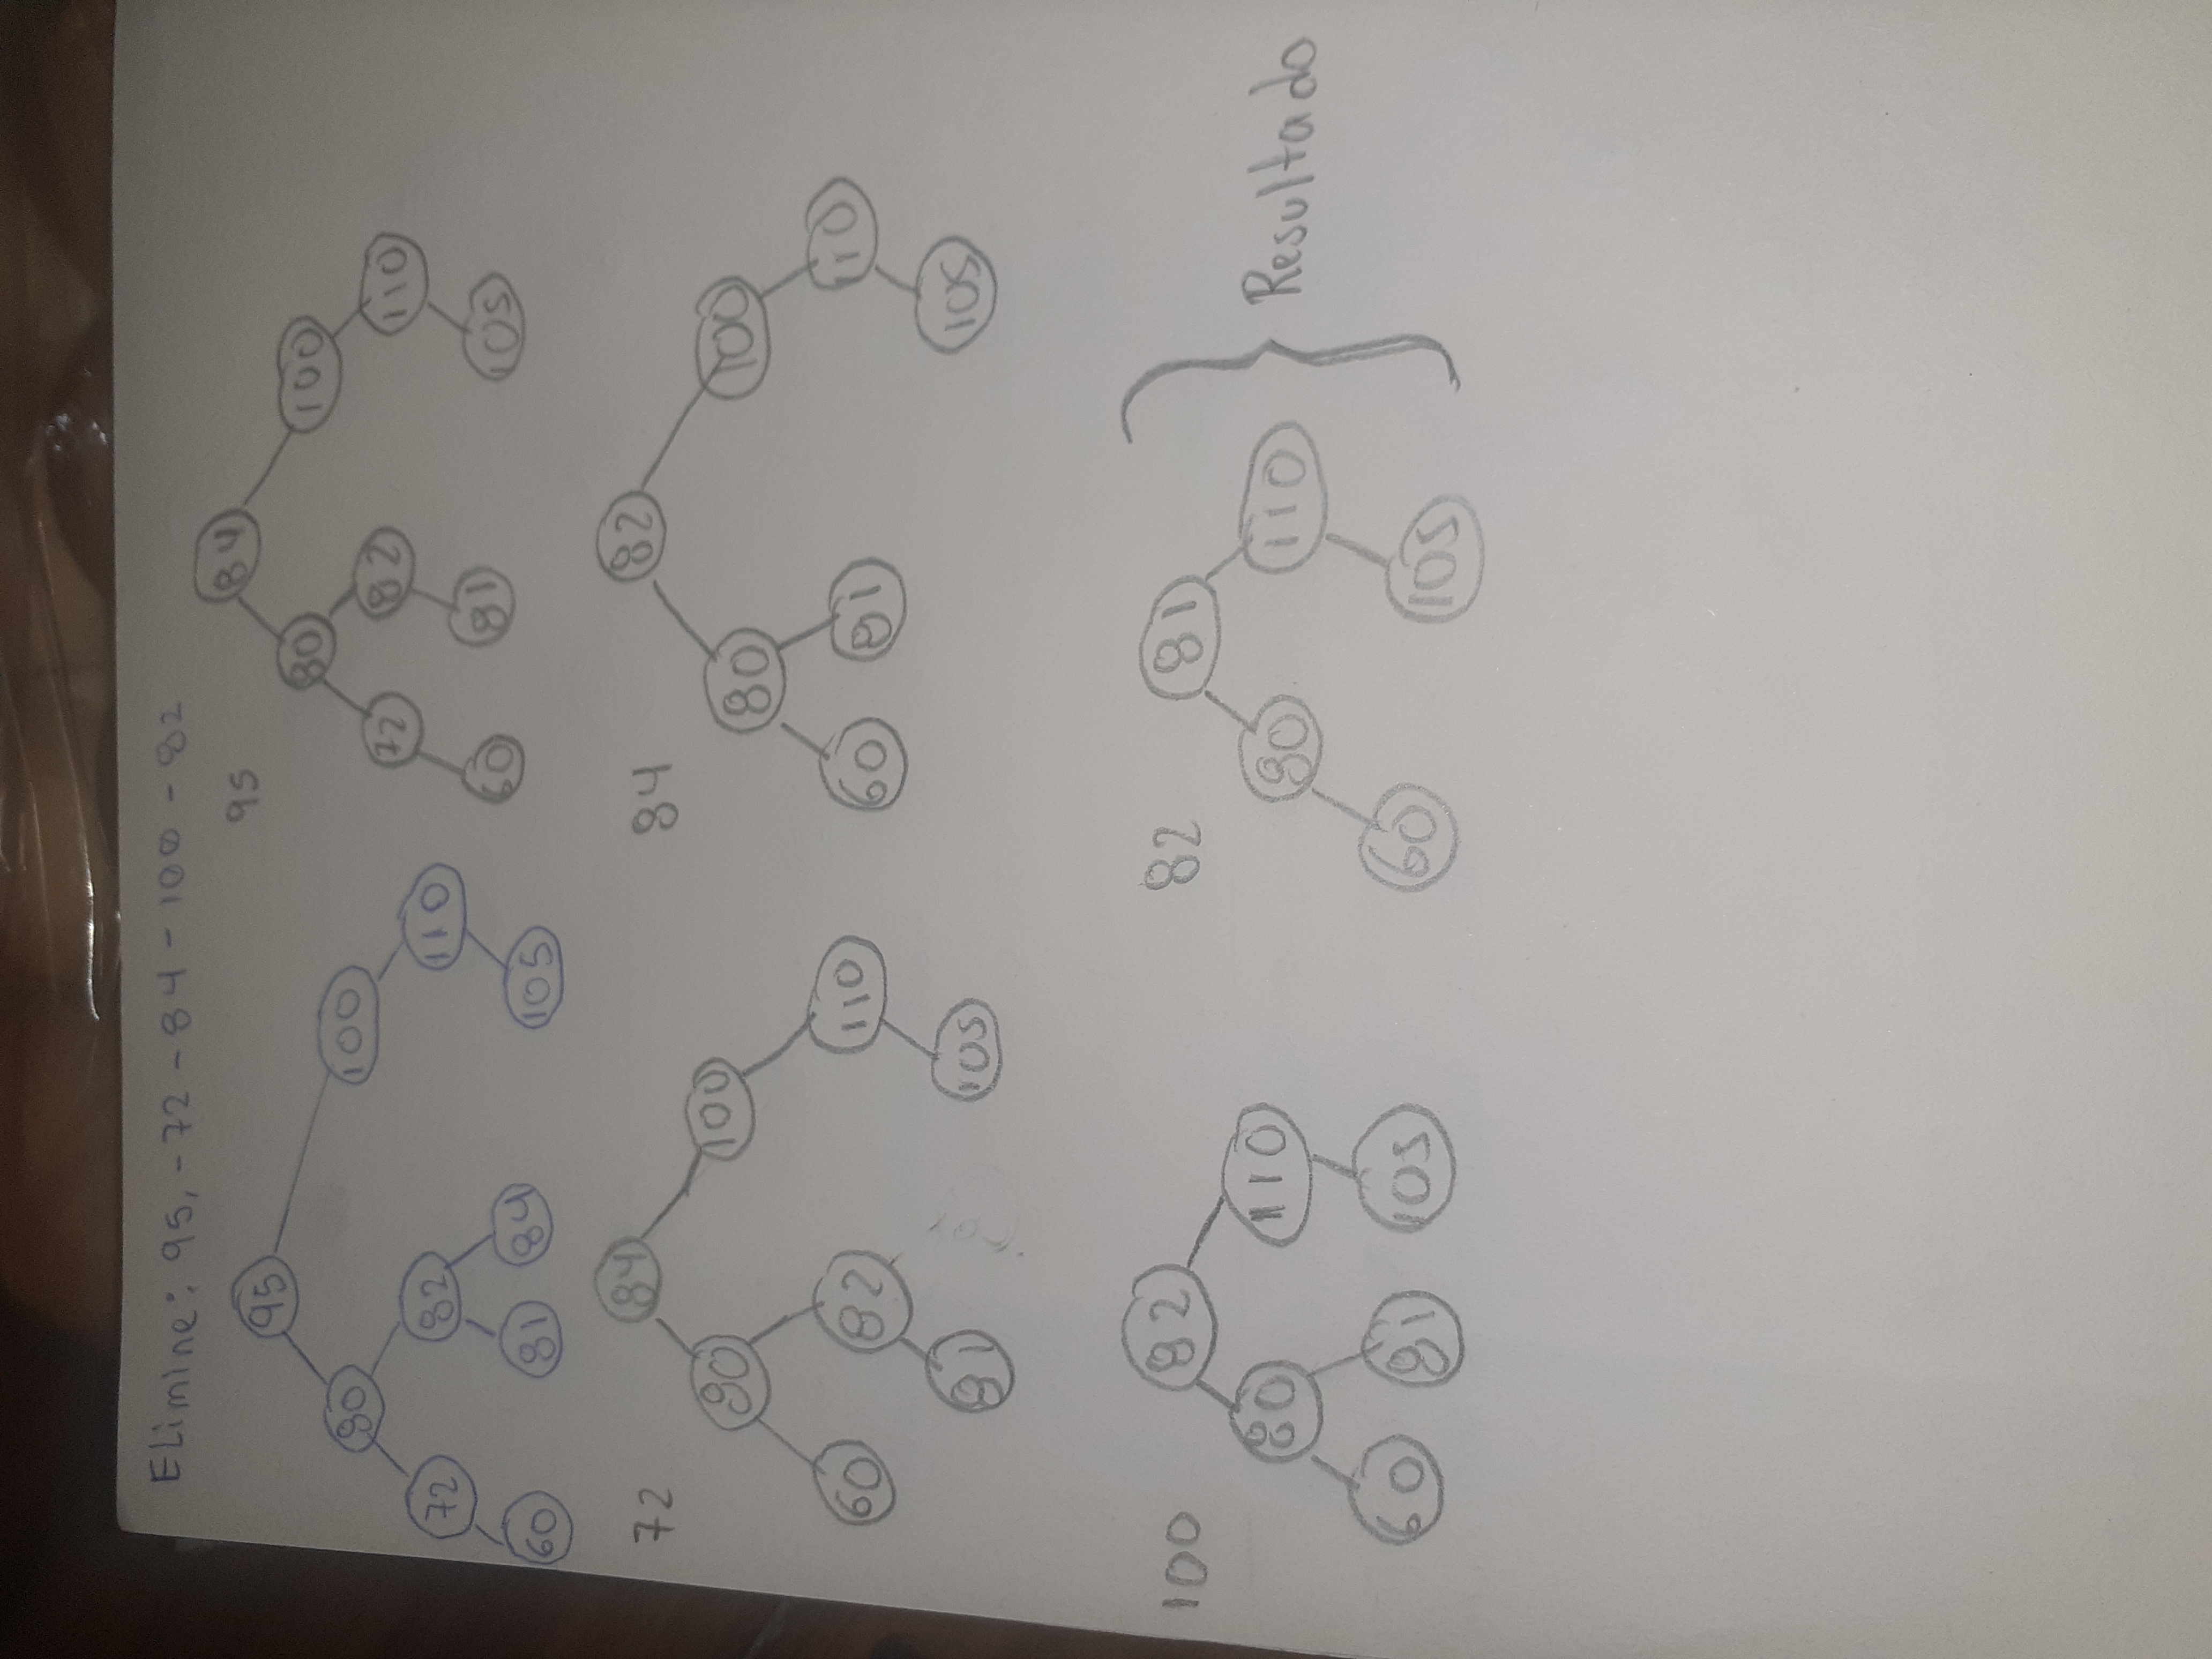 Elimine: 95, -72 - 84 - 100 - 82
95
80 100
72 82 110
60 81 84 105
95
84
80 100
72 82 110
60 81 105
72
84
80 100
60 82 110
81 105
84
82
80 100
60 81 110
105
100
82
80 110
60 81 105
82
81
80 110
60 105
Resultado